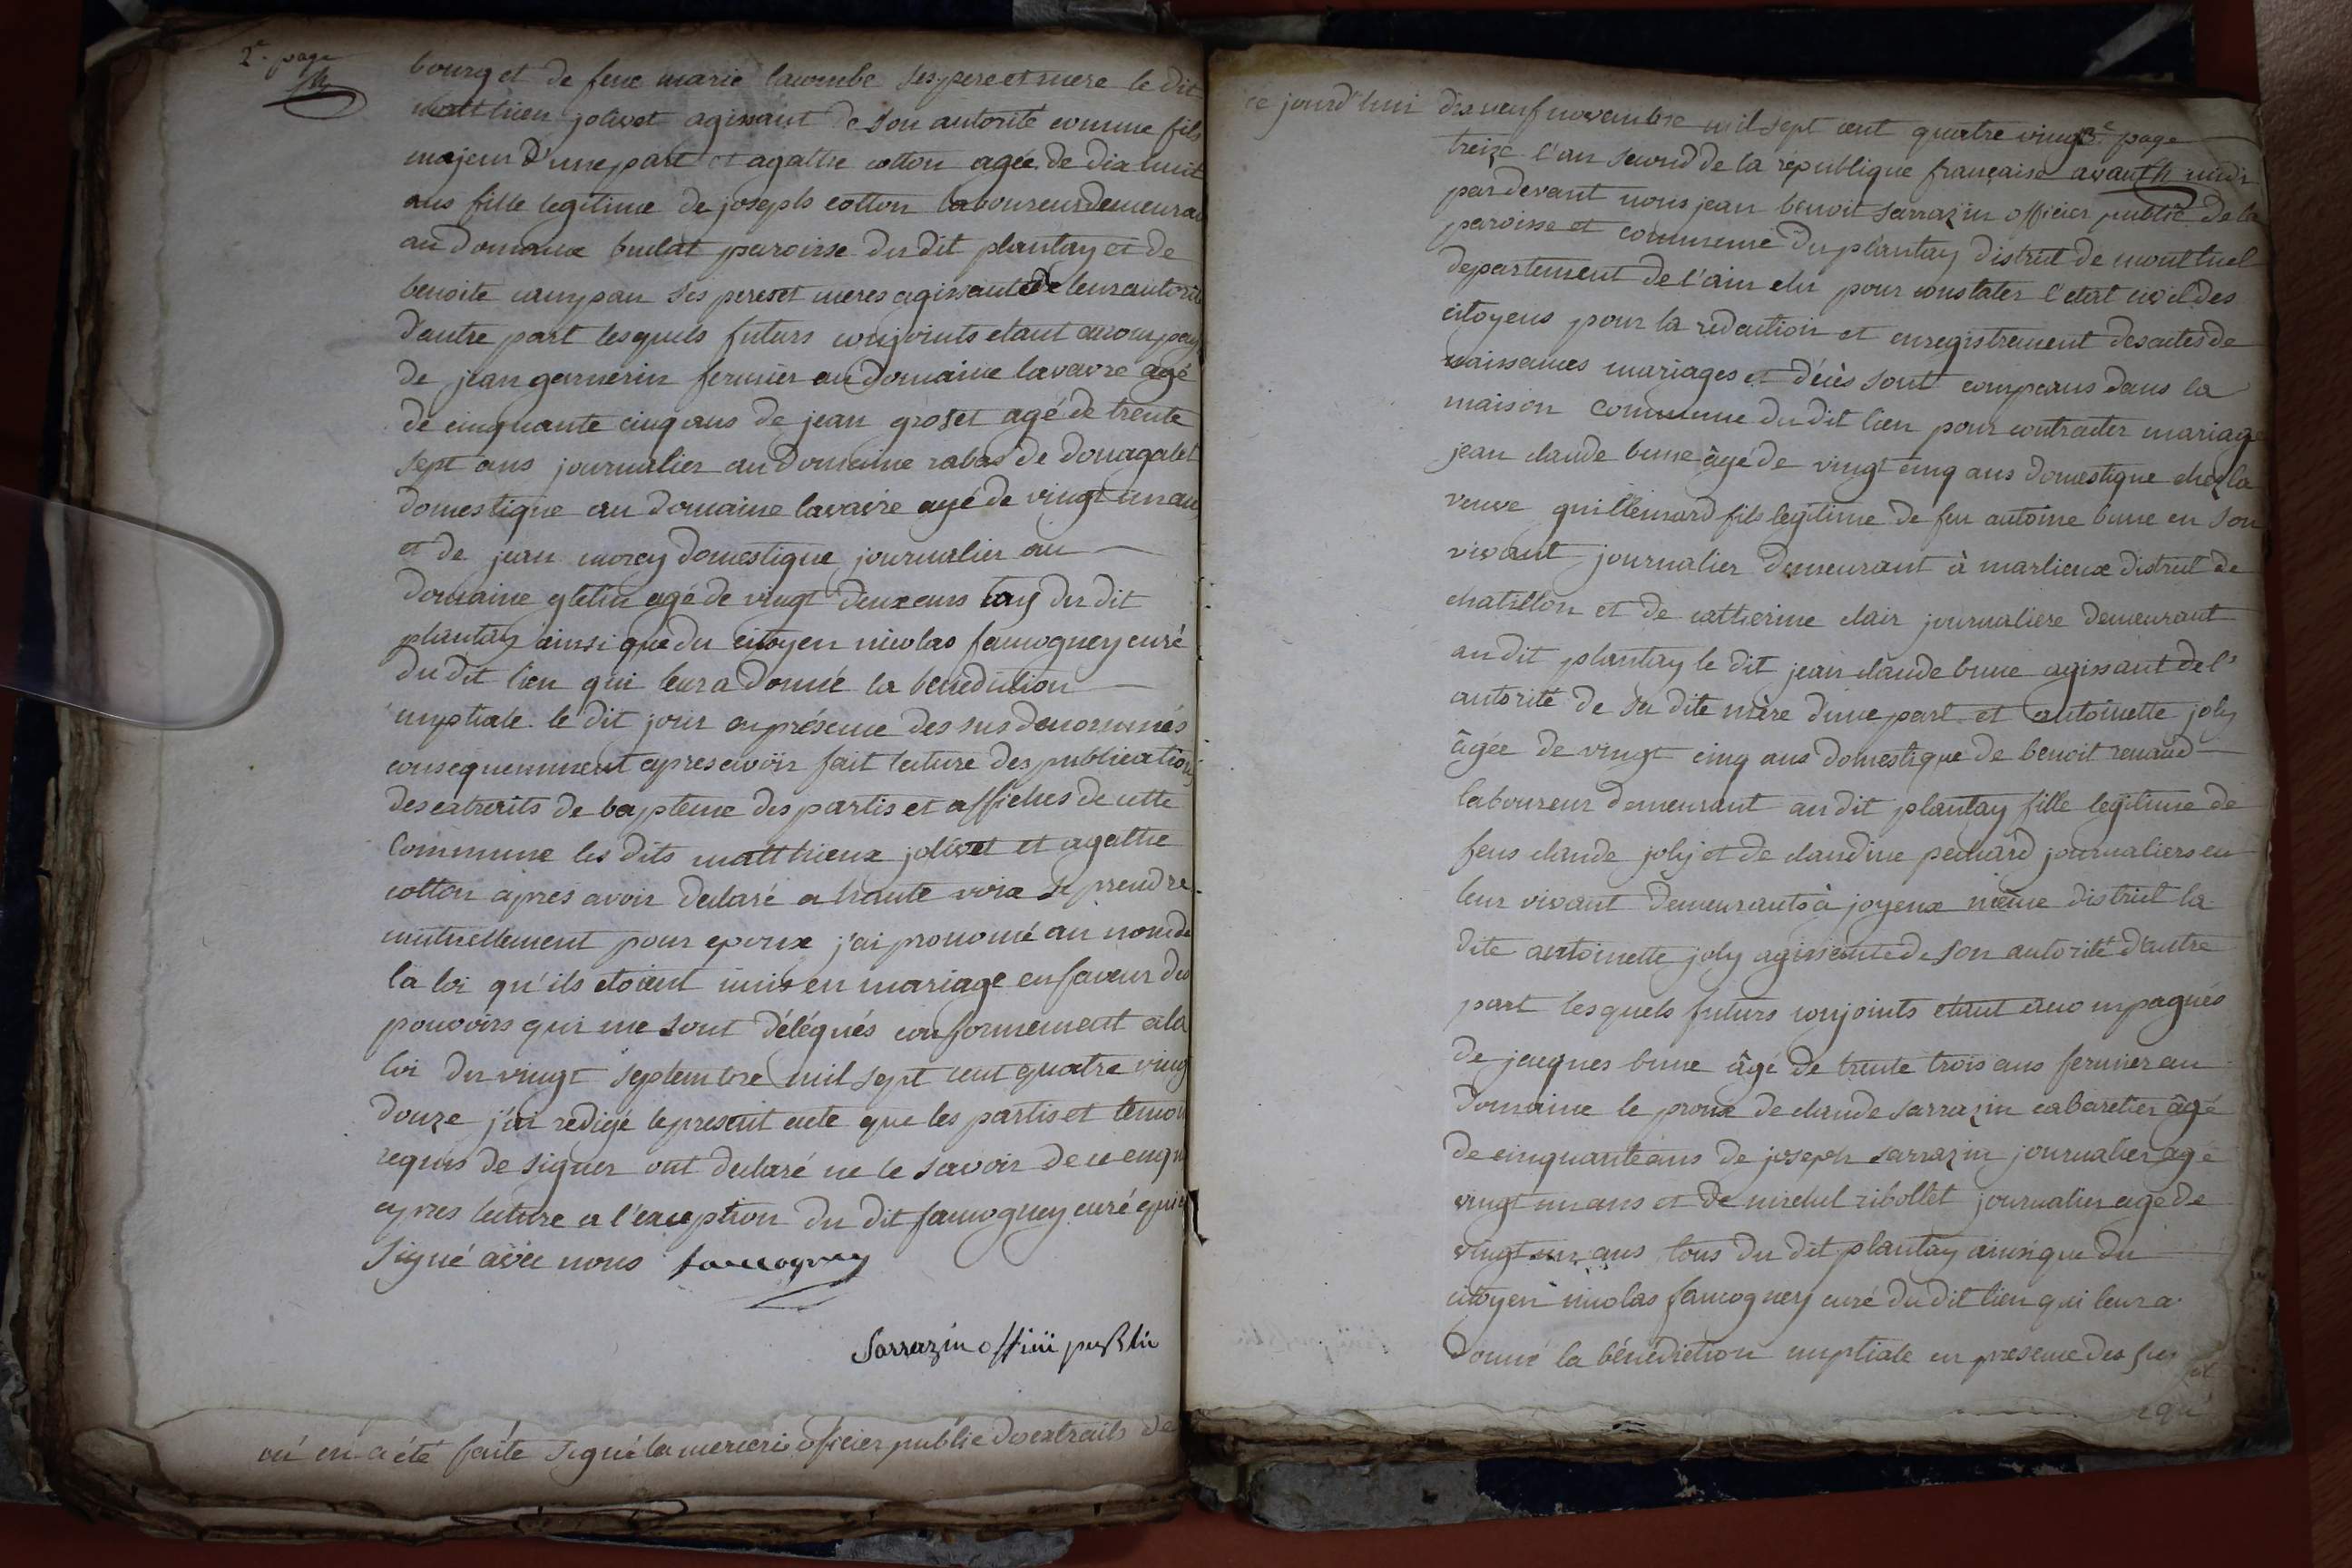 2e. page
bourg et de feue marie lacombe ses pere et mere le dit
matthieu jolivet agissant de son autorité comme fils
majeur d'une part et agathe cotton agée de dix huit
ans fille legitime de joseph cotton laboureur demeurant
au domaine bulat paroisse du dit plantay et de
benoite campan ses pere et meres agissante de leur autorité
d'autre part lesquels futurs conjoints etant accompag
de jean garnerin fermier au domaine lavavre agé
de cinquante cinq ans de jean groset agé de trente
sept ans journalier au domaine rabas de
domestique au domaine lavavre agé de vingt un an
et de jean morey domestique journalier au
domaine gletin agé de vingt deux ans du dit
plantay ainsi que du citoyen nicolas faucogney curé
du dit lieu qui leur a donné la benediction
nuptiale le dit jour en présence des sus denommés
consequemment apres avoir fait lecture des publications
des extraits de baptême des partis et affiches de cette
commune les dits matthieux jolivet et agathe
cotton après avoir declaré a haute voix se prendre
mutuellement pour epoux j'ai prononcé au nom de
la loi qu'ils etoient unis en mariage en faveur des
pouvoirs qui me sont délégués conformement a la
loi du vingt septembre mil sept cent quatre vingt
douze j'ai redigé le present acte que les partis et temoi
requis de signer ont declaré ne le savoir de ce enqu
apres lecture a l'exception du dit faucogney curé qui a
signé avec nous faucogney
Sarrazin officii public
ou en a été faite signé lamercerie officier public des extraits de
ce jourd'hui dix neuf novembre mil sept cent quatre vingt
3e page
treize l'an second de la république française avant midi
par devant nous jean benoit sarrazin officier public de la
paroisse et commune du plantay district de montluel
departement de l'ain elu pour constater l'etat civil des
citoyens pour la redaction et enregistrement des actes de
naissances mariages et décès sont comparus dans la
maison commune du dit lieu pour contracter mariage
jean claude bune âgé de vingt cinq ans domestique chez la
veuve guillemard fils legitime de feu antoine bune en son
vivant journalier demeurant à marlieux district de
chatillon et de catherine clair journaliere demeurant
au dit plantay le dit jean claude bune agissant de l'
autorité de sa dite mère d'une part et antoinette joly
âgée de vingt cinq ans domestique de benoit renaud
laboureur demeurant au dit plantay fille legitime de
feus claude joly et de claudine pechard journaliers en
leur vivant demeurants à joyeux même district la
dite antoinette joly agissante de son autorité d'autre
part lesquels futurs conjoints etant accompagnés
de jacques bune âgé de trente trois ans fermier au
domaine le proux de claude sarrazin cabaretier âgé
de cinquante ans de joseph sarrazin journalier agé
vingt un ans et de michel ribollet journalier agé de
vingt un ans tous du dit plantay ainsi que du
citoyen nicolas faucogney curé du dit lieu qui leur a
donné la bénédiction nuptiale en presence des sus